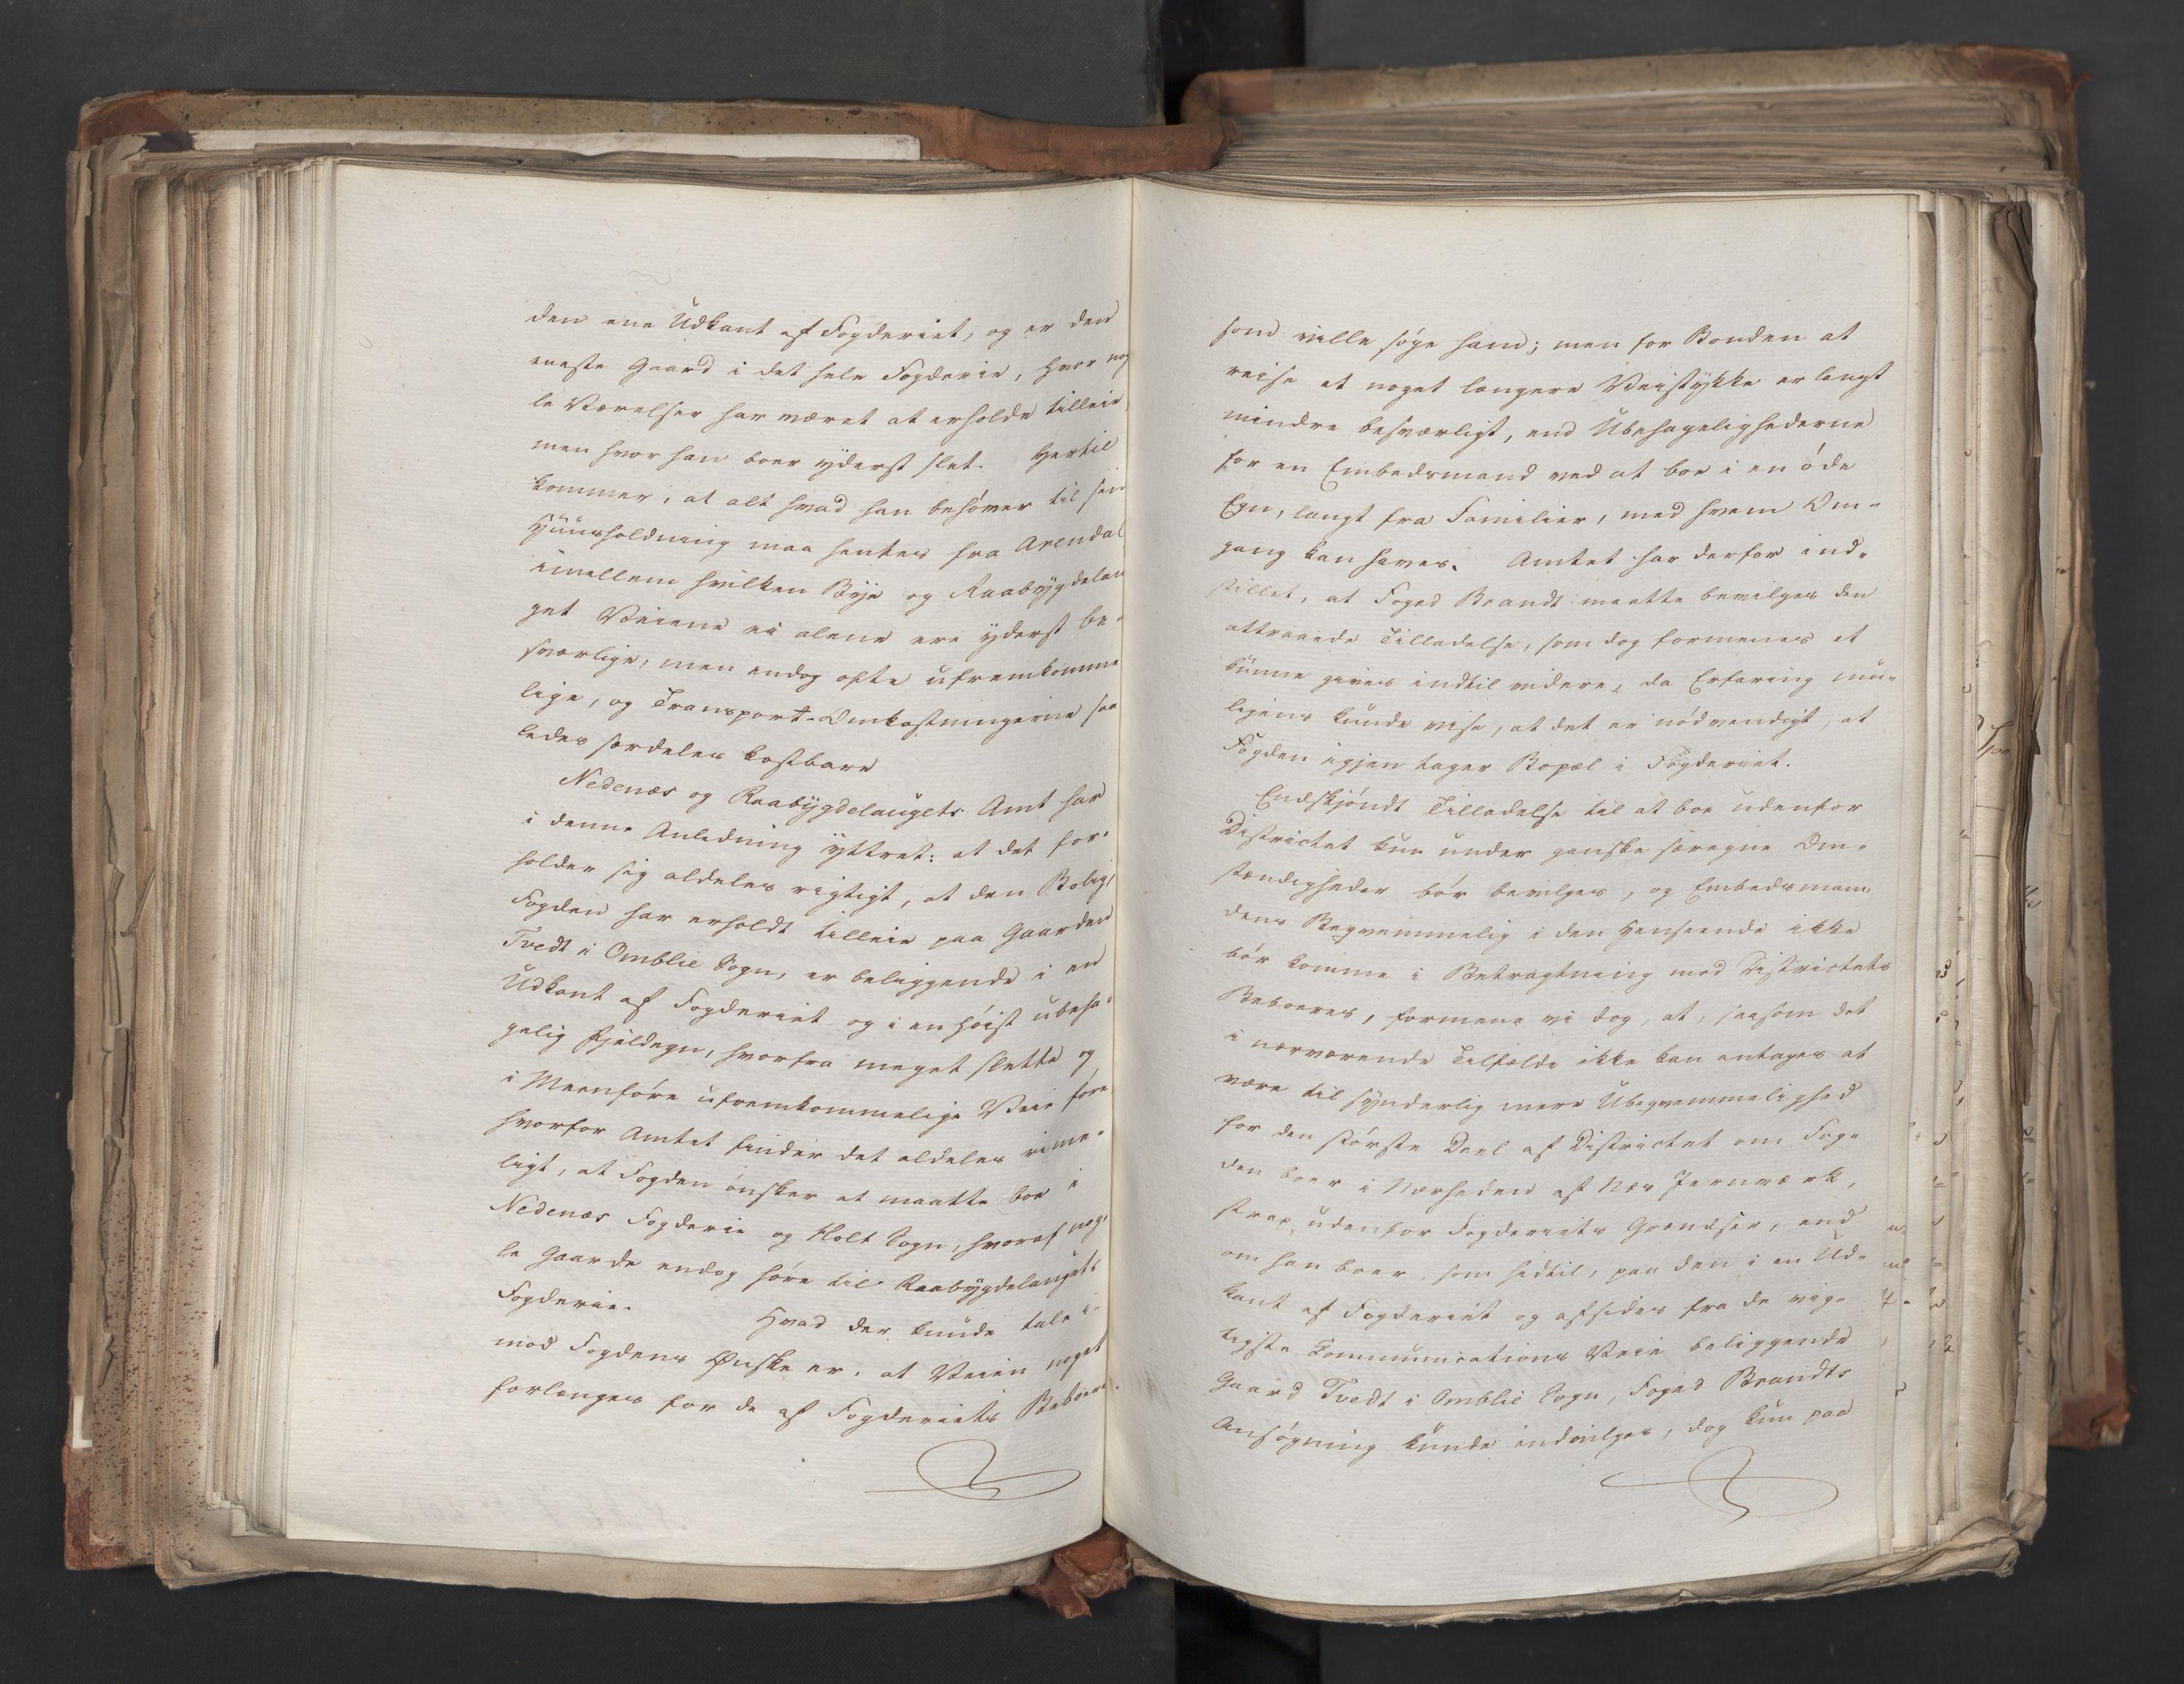 den ene Udkant af Fogderiet, og er den
eneste Gaard i det hele Fogderie, hvor nog
le Værelser har været at erholde tilleie
men hvor han boer yderst slet. Hertil
kommer, at alt hvad han behøver til sin
Huusholdning maa hentes fra Arendal
imellem hvilken Bye og Raabygdelau
get Veiene ei alene ere yderst be-
sværlige, men endog ofte ufremkomme
lige, og Transport-Omkostningerne saa
ledes særdeles kostbare
Nedenæs og Raabygdelaugets Amt har
i denne Anledning yttret: at det for-
holder sig aldeles rigtigt, at den Bolig,
Fogden har erholdt tilleie paa Gaarden
Tvedt i Omblie Sogn, er beliggende i en
Udkant af Fogderiet og i en høist ubeha-
gelig Fjeldegn, hvorfra meget slette og
i Meenføre ufremkommelige Veie føre
hvorfor Amtet finder det aldeles rime-
ligt, at Fogden ønsker at maatte boe i
Nedenæs Fogderie og Holt Sogn, hvoraf nog-
le Gaarde endog høre til Raabygdelaugets
Fogderie. Hvad der kunde tale i-
mod Fogdens Ønske er, at Veien noget
forlænges for de af Fogderiets Beboere
som ville søge ham; men for Bonden at
reise et noget længere Veistykke er langt
mindre besværligt, end Ubehagelighederne
for en Embedsmand ved at boe i en øde
Egn, langt fra Familier, med hvem Om-
gang kan haves. Amtet har derfor ind-
stillet, at Foged Brandt maatte bevilges den
attraaede Tilladelse, som dog formenes at
kunne gives indtil videre, da Erfaring mu-
ligens kunde vise, at det er nødvendigt, at
Fogden igjen tager Bopæl i Fogderiet.
Endskjøndt Tilladelse til at boe udenfor
Districtet kun under ganske særegne Om-
stændigheder bør bevilges, og Embedsman
dens Beqvemmelig i den Henseende ikke
bør komme i Betragtning mod Districtets
Beboeres, formene vi dog, at, saasom det
i nærværende Tilfælde ikke kan antages at
være til synderlig mere Ubeqvemmelighed
for den største Deel af Districtet om Fog-
den boer i Nærheden af Næs Jernværk,
strax udenfor Fogderiets Grændser, end
om han boer, som hidtil, paa den i en Ud-
kant af Fogderiet og afsides fra de vig-
tigste Communications Veie beliggende
Gaard Tvedt i Omblie Sogn, Foged Brandts
Ansøgning kunde indvilges, dog kun paa